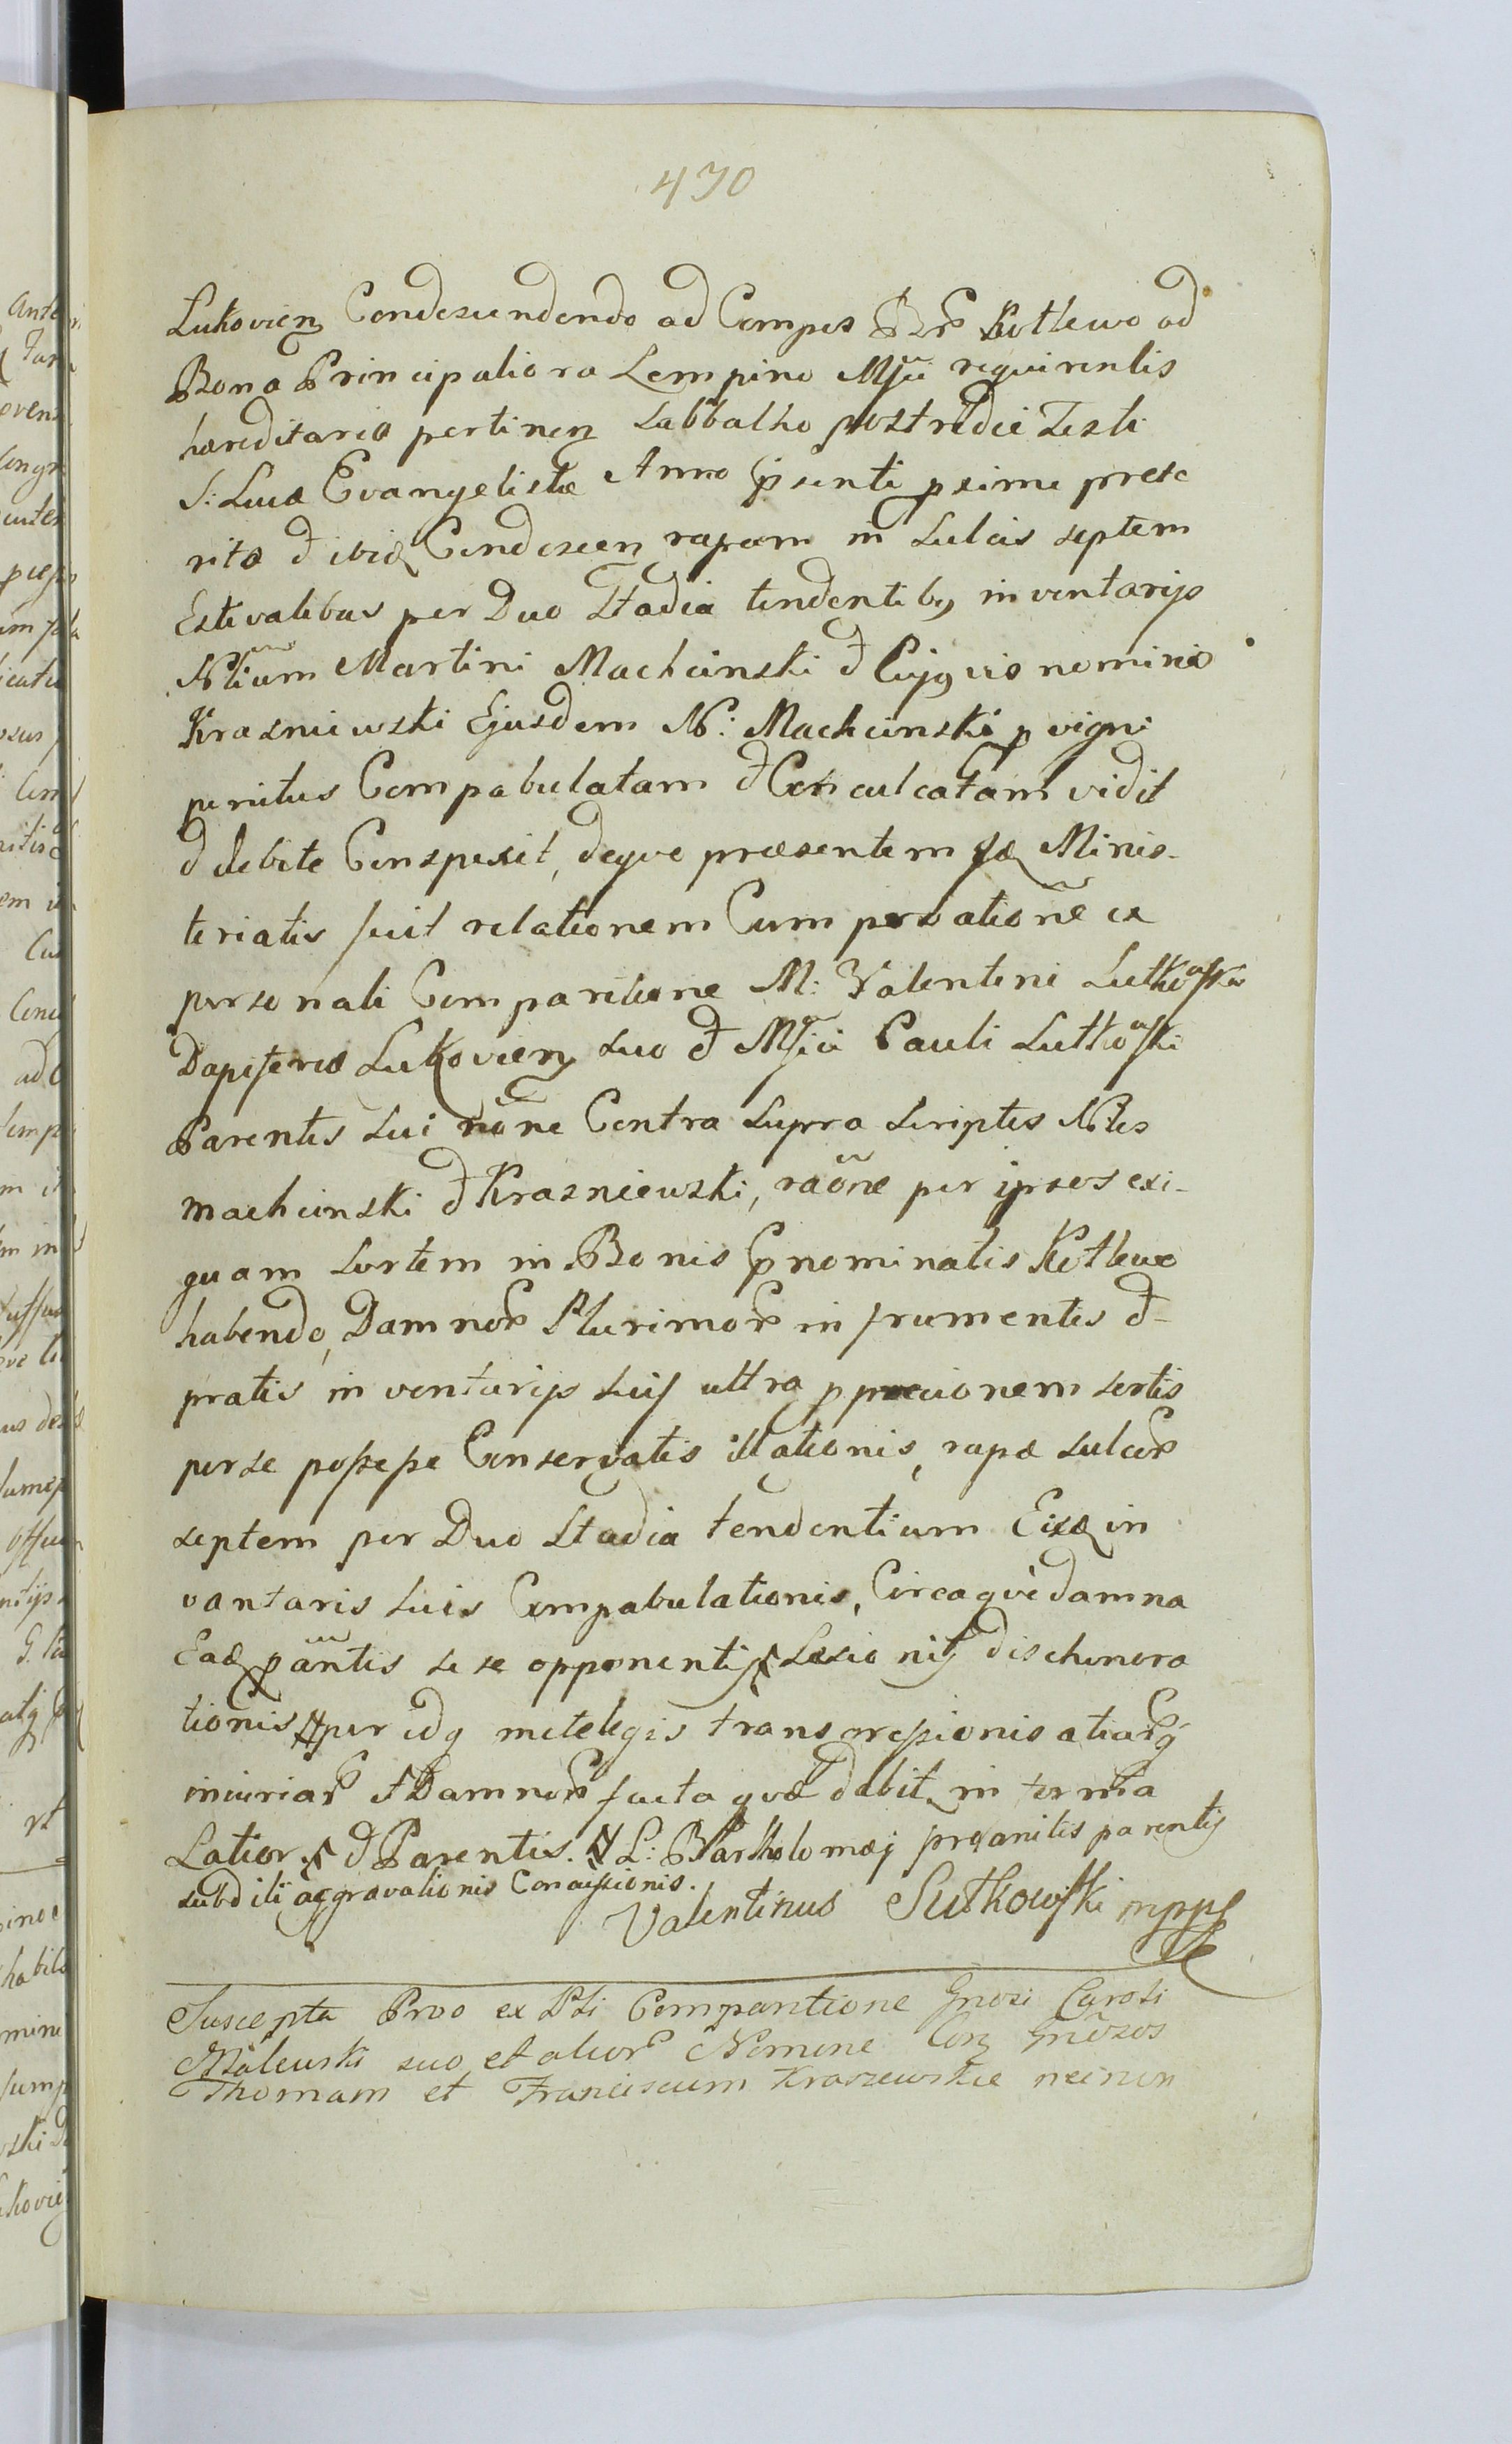 470
Lukovien Condescendendo ad Campos Bor Kotlewo ad
Bona Principaliora Lempino Mfci requirentis
hæreditaria pertinen Sabbatho postridie Festi
S: Lucæ Evangelistæ Anno psenti pxime præte
rita & ibid Condescen rapam in Sulcis septem
Estivalibus per Duo Stadia tendentibg inventarijs
Nbilium Martini Machcinski & Cujgvis nominis
Krasniewski Ejusdem N: Machcinski pvigni
penitus Compabulatam & Conculcatam vidit
& debite Conspexit, deqve præsentem sæ Minis-
terialis fecit relationem Cum protatione ex
personali Comparitione M: Valentini Lutkowski
Dapiferid Lukovien suo & Mfici Pauli Lutkowski
Parentis Sui none Contra Supra Scriptos Nbles
Machcinski & Krasniewski, raone per ipsos exi-
guam Sortem in Bonis pnominatis Kotlewo
habendo, Damnor Plurimor in frumentis &
pratis inventarijs Suis ultra pporcionem sortis
per se possessæ Conservatis illationis, rapæ sulcor
septem per Duo Stadia tendentium Eisd in
vantaris Suis Compabulationis, Circaqve damna
Ead pantis se se opponentis Læsionis dischonora
tionis per idq metelegis transgressionis aliarq
iniuriar & Damnor facta qvæ debit in termia
Latior & Parentis. L: Bartholomæj proanitis parentis
subditi aggravationis Concussionis.
Valentinus Lutkowski mpps
Suscepta Proo ex Psli Comparitione Gnosi Caroli
Malewski suo et alior Nomine Con Gnosos
Thomam et Franciscum Kraszewskie necnon